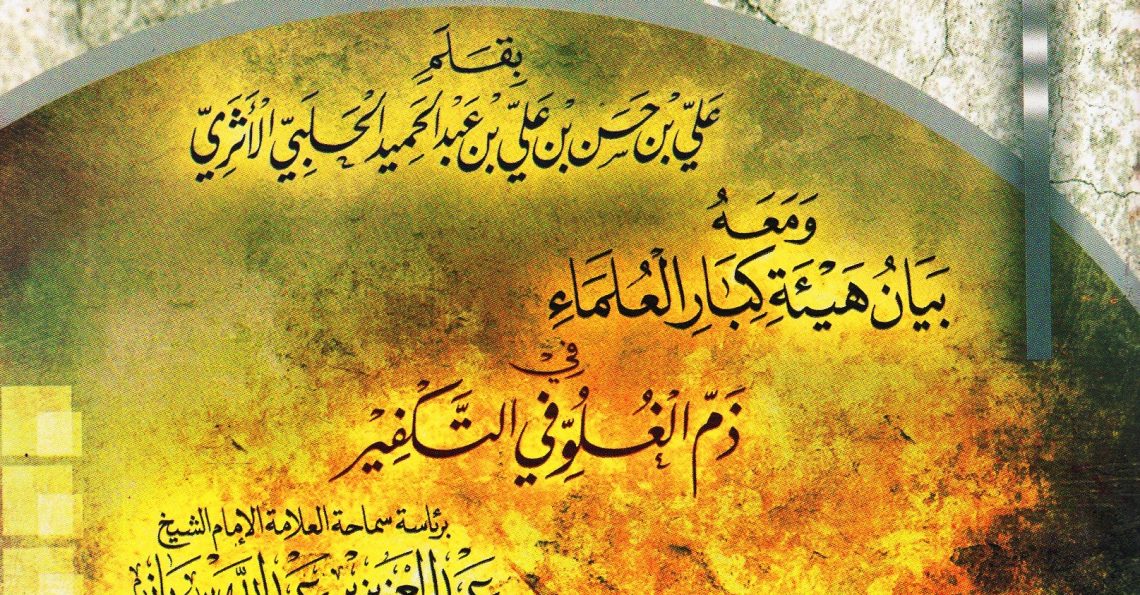 بِقَلَمِ
عَلِيّ بْن حَسَن بْن عَلِيّ بْن عَبْد الْحَمِيد الْحَلَبِيّ الْأَثَرِيّ
وَمَعَهُ
بَيَانُ هَيْئَةِ كِبَارِ الْعُلَمَاءِ
فِي
ذَمّ الْغُلُوِّ فِي التَّكْفِيْر
برئاسة سماحة العلامة الإمام الشيخ
عبد العزيز بن عبد الله